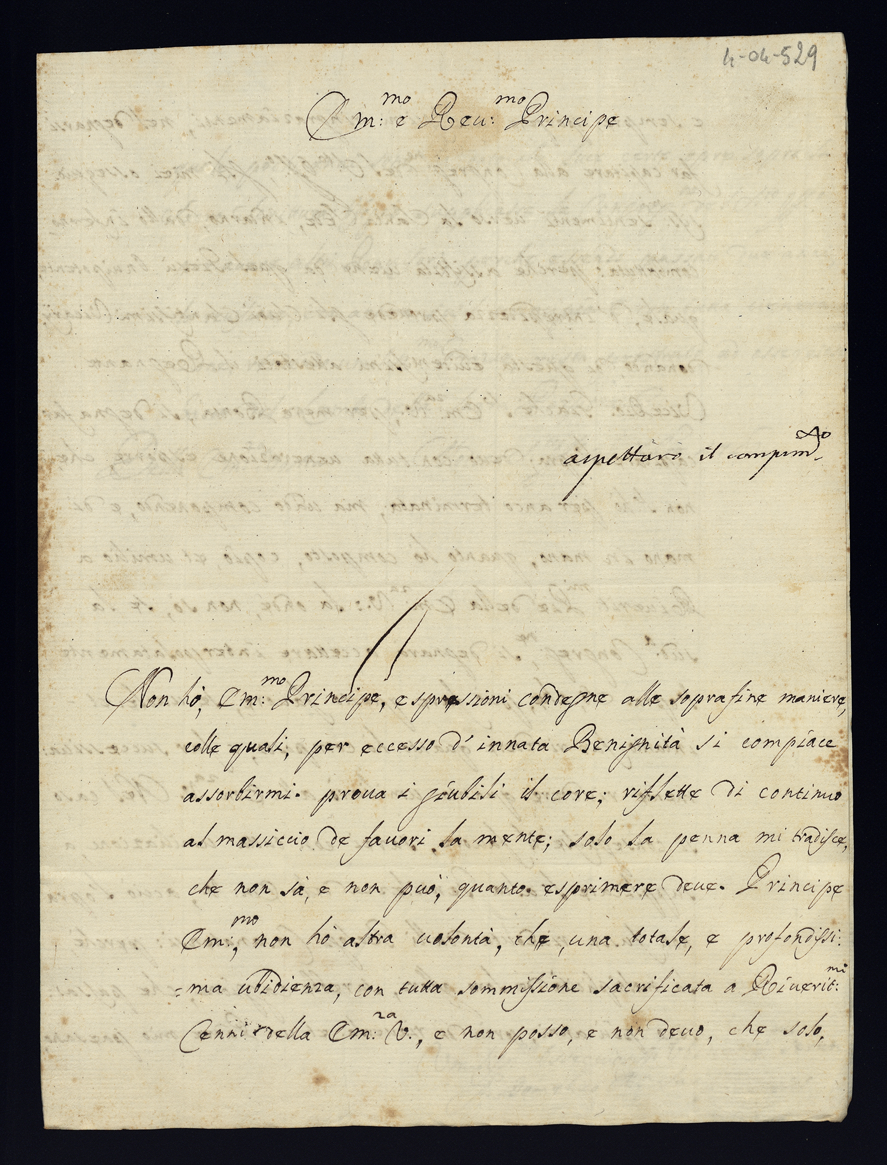 4-04-529
Em:mo e Reu:mo Principe
aspettarò il compimto
Non hò, Em:mo Principe, espressioni condegne alle soprafine maniere,
colle quali, per eccesso d'innata Benignità si compiace
assorbirmi. proua i giubili il core; riflette di continuo
al massiccio de fauori la mente; solo la penna mi tradisce,
che non sà, e non può, quanto esprimere deue. Principe
Em:mo, non hò altra uolontà, che una totale, e profondissi:
=ma ubidienza, con tutta sommissione sacrificata a Riuerit:mi
Cenni della Em:za V., e non posso, e non deuo, che solo,